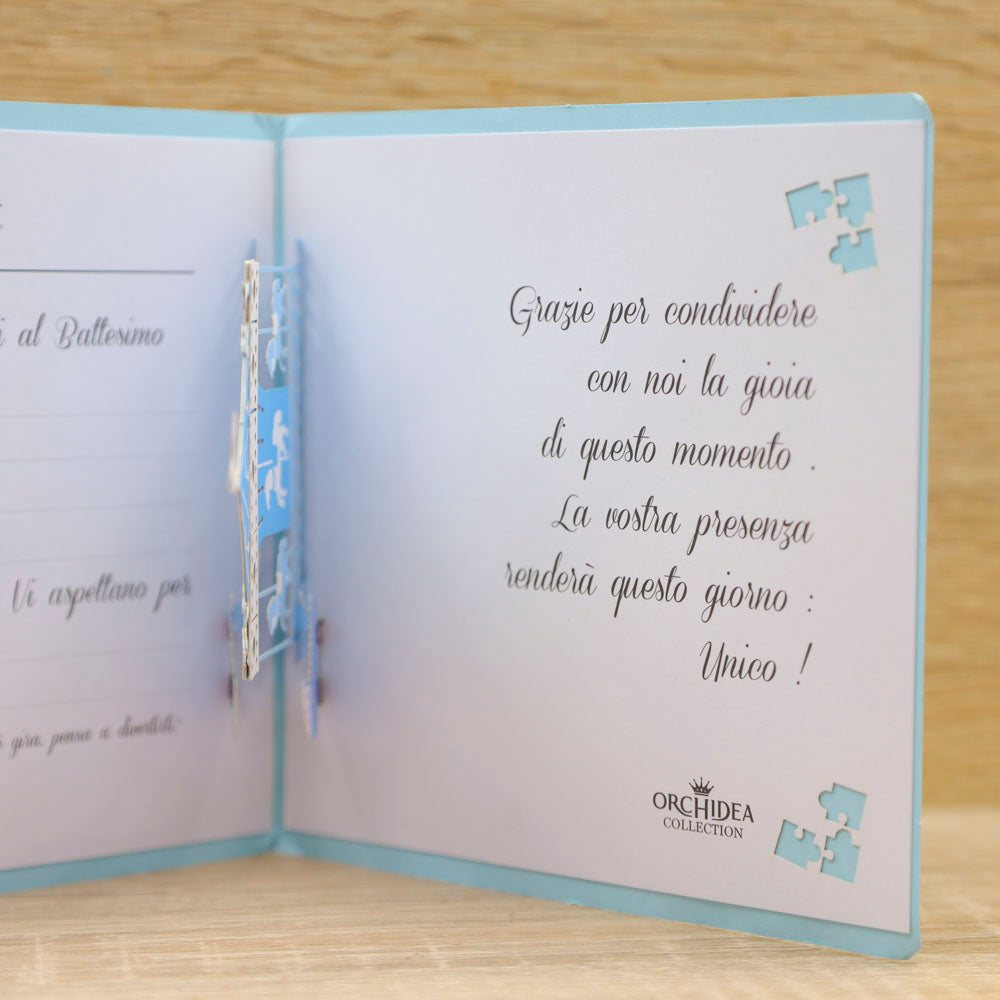 al Battesimo
Vi aspettano per
gira, pensa a divertirti."
Grazie per condividere
con noi la gioia
di questo momento .
La vostra presenza
renderà questo giorno :
Unico !
ORCHIDEA
COLLECTION